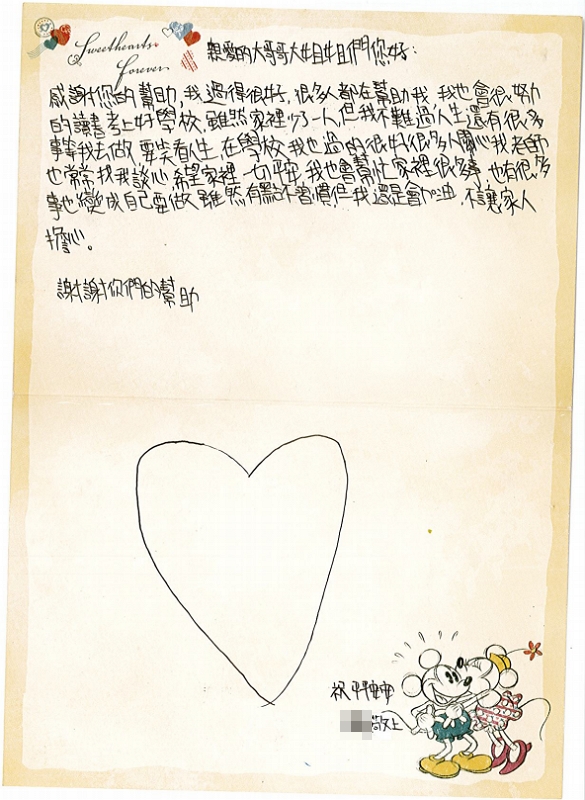 Sweethearts
Forever
親愛的大哥哥大姐姐們您好:
感謝您的幫助,我過得很好,很多人都在幫助我,我也會很努力
的讀書考上好學校,雖然家裡少了一人,但我不難過人生還有很多
事等我去做,要笑看人生,在學校我也過的很好很多人關心我老師
也常常找我談心,希望家裡一切平安,我也會幫忙家裡很多事,也有很多
事也變成自己要做,雖然有點不習慣但我還是會加油,不讓家人
擔心。
謝謝你們的幫助
祝平安
敬上